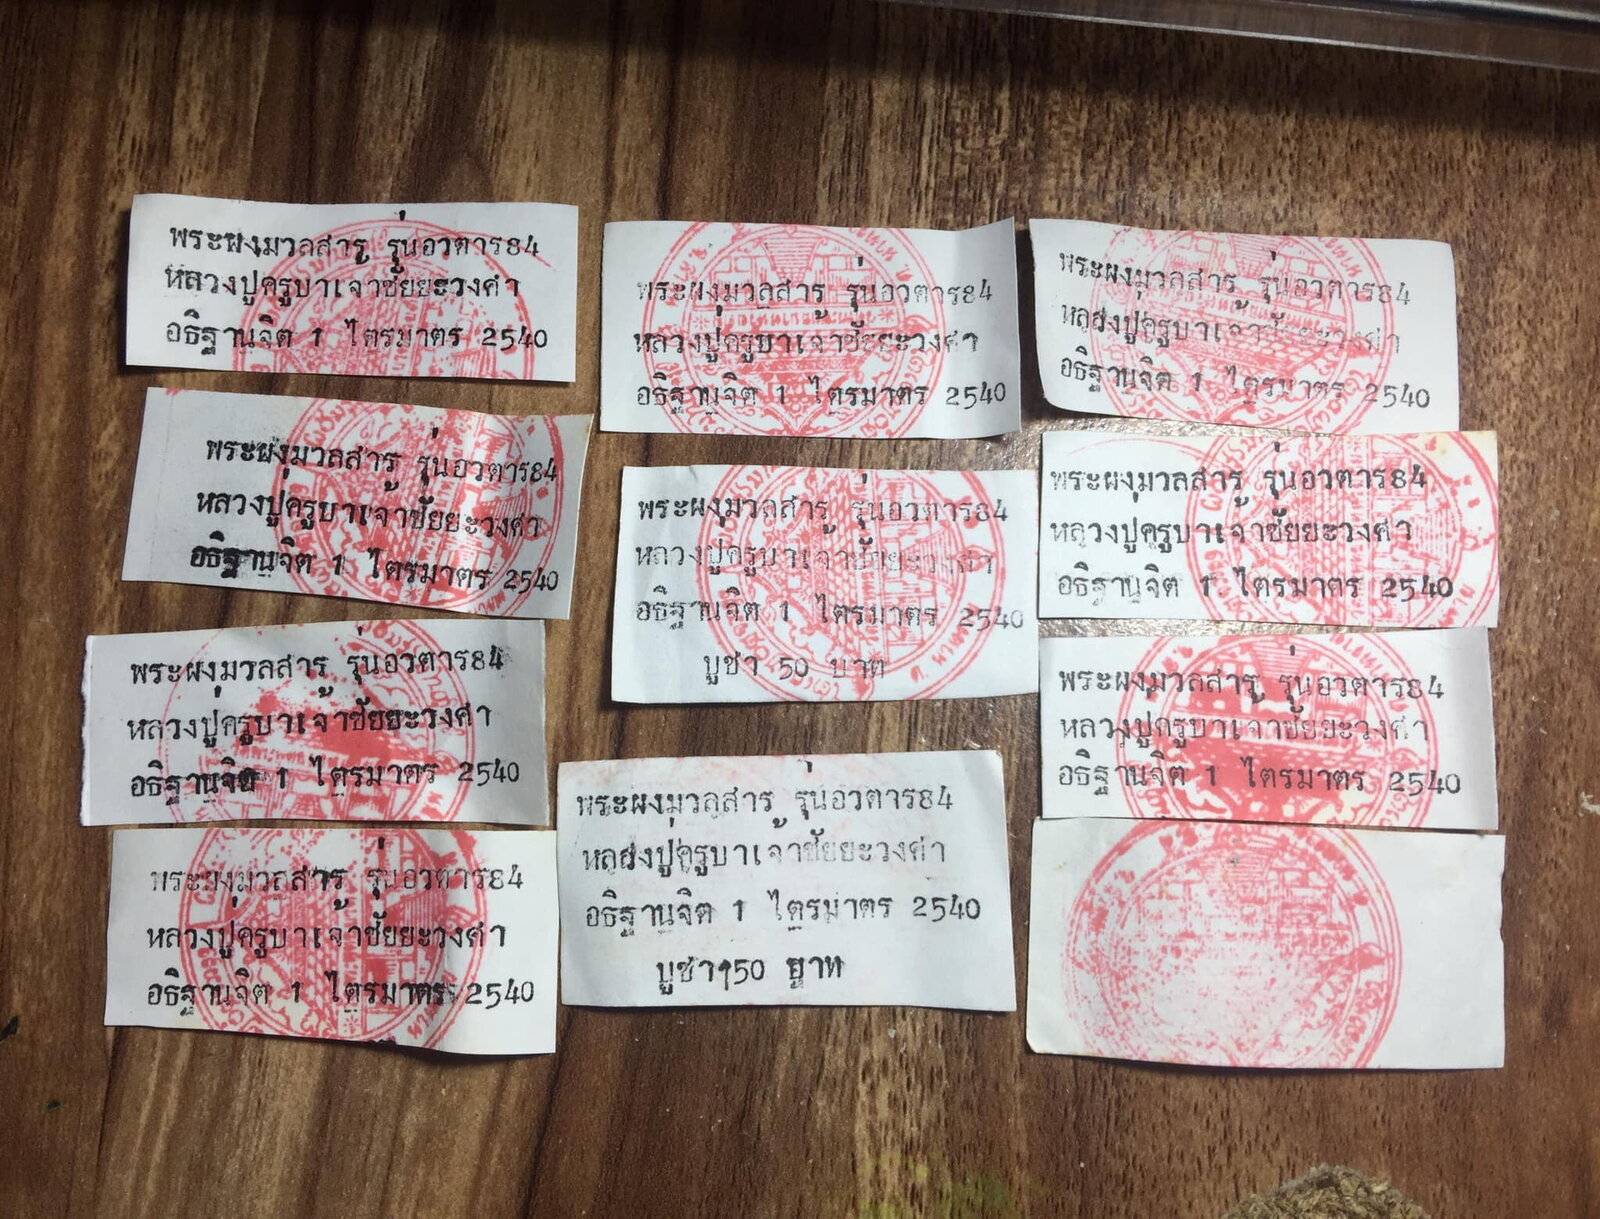 พระผงมวลสารู รุ่นอวตาร84
หลวงปู่ครูบาเจ้าชัยยะวงศา
อธิฐานจิต 1 ไตรมาตร 2540
พระผงมวลสารู รุ่นอวตาร84
หลวงปู่ครูบาเจ้าชัยยะวงศา
อธิฐานจิต 1 ไตรมาตร 2540
พระผงมวลสารู รุ่นอวตาร84
หลวงปู่ครูบาเจ้าชัยยะวงศา
อธิฐานจิต 1 ไตรมาตร 2540
พระผงมวลสารู รุ่นอวตาร84
หลวงปู่ครูบาเจ้าชัยยะวงศา
อธิฐานจิต 1 ไตรมาตร 2540
พระผงมวลสารู รุ่นอวตาร84
หลวงปู่ครูบาเจ้าชัยยะวงศา
อธิฐานจิต 1 ไตรมาตร 2540
พระผงมวลสารู รุ่นอวตาร84
หลวงปู่ครูบาเจ้าชัยยะวงศา
อธิฐานจิต 1 ไตรมาตร 2540
บูชา 50 บาท
พระผงมวลสารู รุ่นอวตาร84
หลวงปู่ครูบาเจ้าชัยยะวงศา
อธิฐานจิต 1 ไตรมาตร 2540
บูชา 50 บาท
พระผงมวลสารู รุ่นอวตาร84
หลวงปู่ครูบาเจ้าชัยยะวงศา
อธิฐานจิต 1 ไตรมาตร 2540
พระผงมวลสารู รุ่นอวตาร84
หลวงปู่ครูบาเจ้าชัยยะวงศา
อธิฐานจิต 1 ไตรมาตร 2540
พระผงมวลสารู รุ่นอวตาร84
หลวงปู่ครูบาเจ้าชัยยะวงศา
อธิฐานจิต 1 ไตรมาตร 2540